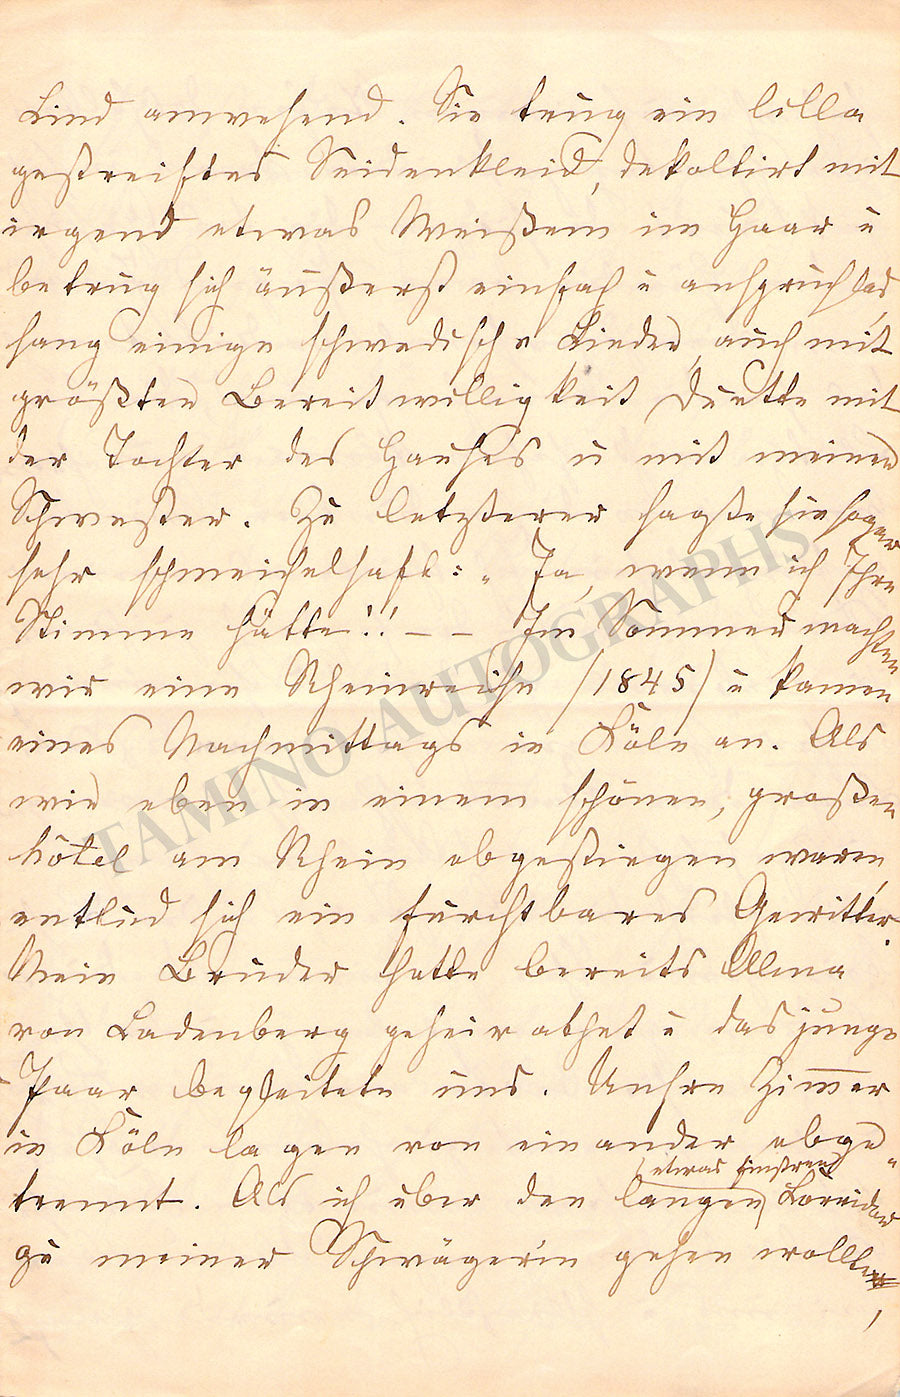 Lind anwesend. Sie trug ein lilla
gestreiftes Seidenkleid, dekoltirt mit
irgend etwas Weißem im Haar u
betrug sich äußerst einfach u anspruchslos,
sang einige schwedische Lieder, auch mit
größter Bereitwilligkeit Duette mit
der Tochter des Hauses u mit meiner
Schwester. Zu letzterer sagte sie sogar
sehr schmeichelhaft: „Ja, wenn ich Ihre
Stimme hätte!! – – Im Sommer machten
wir eine Rheinreise (1845) u kamen
eines Nachmittags in Köln an. Als
wir eben in einem schönen, großen
hôtel am Rhein abgestiegen waren,
entlud sich ein furchtbares Gewitter.
Mein Bruder hatte bereits Alma
von Ladenberg geheirathet u das junge
Paar begleitete uns. Unsre Zimmer
in Köln lagen von einander abge-
etwas finstren
trennt. Als ich über den langen Korridor
zu meiner Schwägerin gehen wollte,
TAMINO AUTOGRAPHS